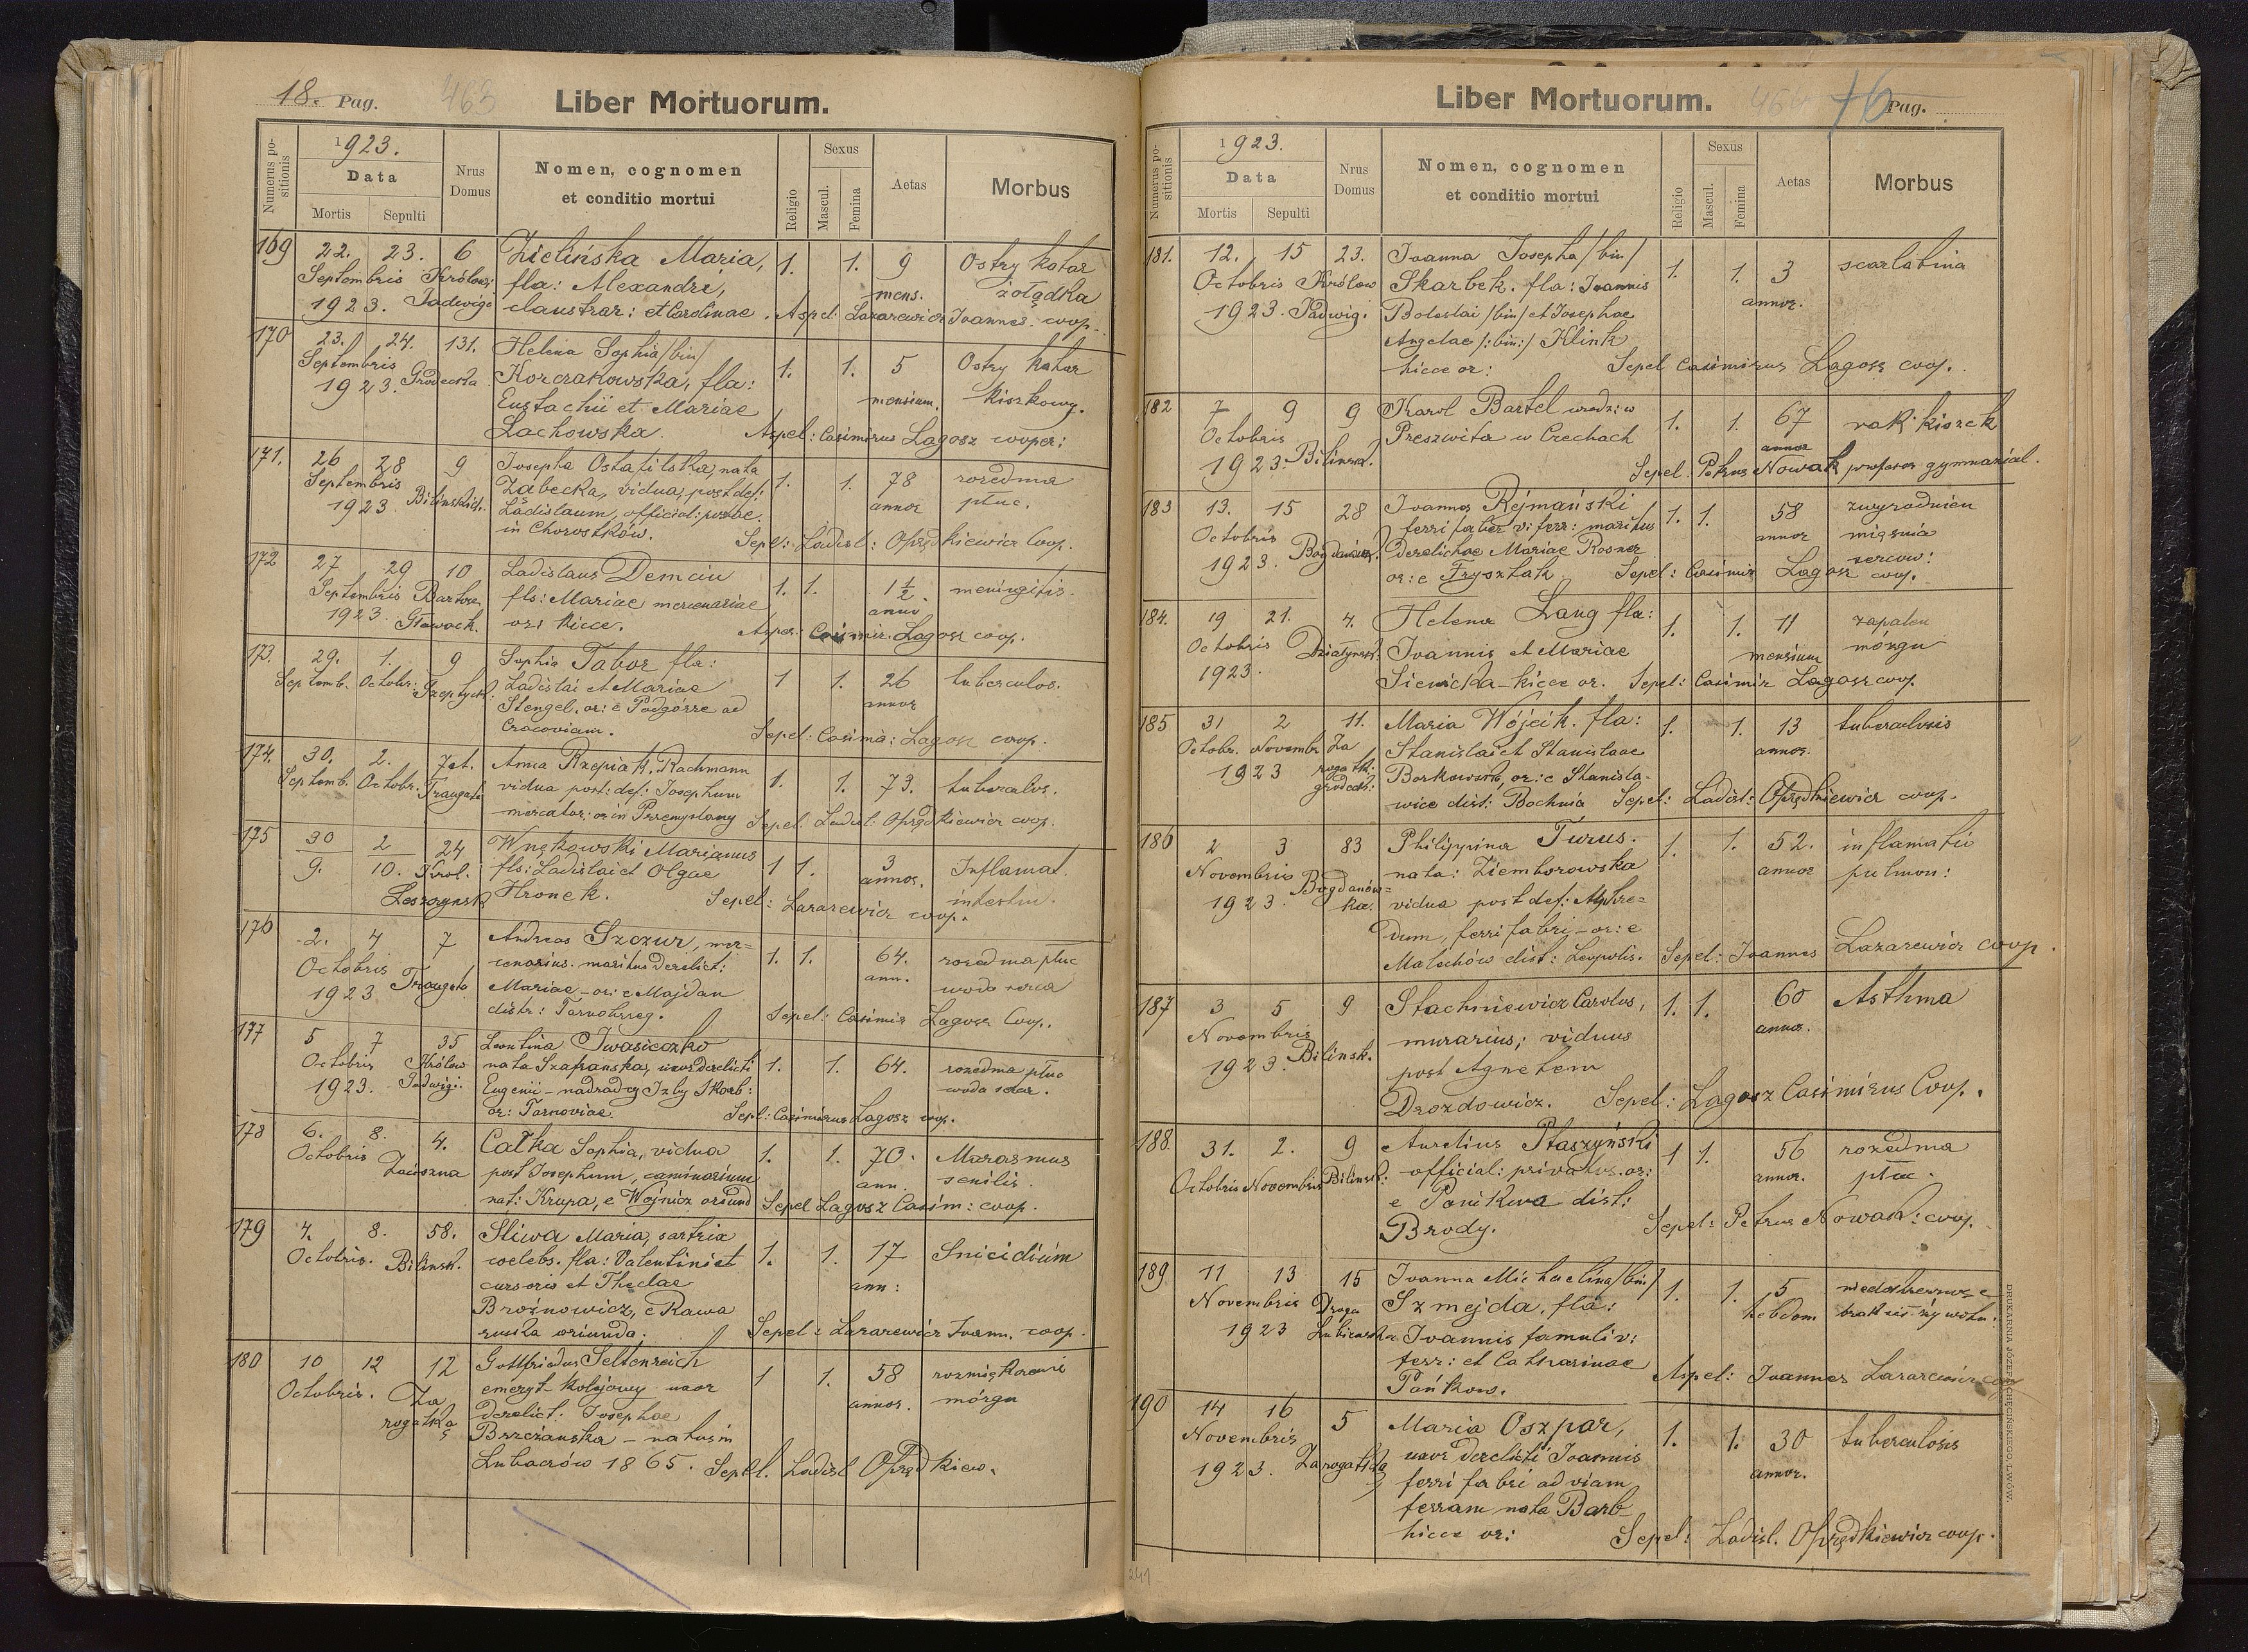 18. Pag. 463 Liber Mortuorum.
Numerus positionis
1923.
Data
Mortis Sepulti
Nrus Domus
Nomen, cognomen et conditio mortui
Religio
Sexus
Mascul. Femina
Aetas
Morbus
169 22. 23. 6 Zielińska Maria, 1. 1. 9 Ostry katar
Septembris Królowej fla: Alexandri, mens. żołądka
1923. Jadwigi claustrar: et Carolinae. Aspel: Lazarewicz Joannes coop.
170 23. 24. 131. Helena Sophia /bin/ 1. 1. 5 Ostry katar
Septembris Gródecka Korczakowska, fla: mensium. kiszkowy.
1923. Eustachii et Mariae
Lachowska. Aspel: Casimirus Lagosz cooper:
171. 26 28 9 Josepha Ostafilska, nata 1. 1. 78 rozedma
Septembris Zabecka, vidua, post def: annor płuc.
1923 Bilinskich. Ladislaum, official: postae
in Chorostków. Sepel: Ladisl: Oprędkiewicz Coop.
172 27 29 10 Ladislaus Demciu 1. 1. 1½ meningitis.
Septembris Bartosz. fls: Mariae mercenariae anno
1923. Głowack. or: hicce. Asper: Casimir. Lagosz coop.
173. 29. 1. 9 Sophia Tabor fla: 1 1. 26 tuberculos.
Septemb. Octobr. Szeptyck. Ladislai et Mariae annor
Stengel. or: e Podgórze ad
Cracoviam. Sepel: Casimi: Lagosz coop.
174. 30. 2. 7at. Anna Rzepiak. Rachmann 1. 1. 73. tuberculos.
Septemb. Octobr. Traugutta vidua post: def: Josephum
mercator: or in Przemyslany Sepel: Ladisl: Oprędkiewicz coop.
175 30 2 24 Wnękowski Marjanus 1 1. 3 Inflamat.
9. 10. Krol. fls: Ladislai et Olgae annor. intestin.
Leszczynsk Hronek. Sepel: Lazarewicz coop.
176 2. 4 7 Andreas Szczur, mer= 1. 1. 64. rozedma płuc
Octobris Traugutta cenarius. maritus derelict: ann. woda serca
1923 Mariae - or: e Majdan
distr: Tarnobrzeg. Sepel: Casimir Lagosz Coop.
177 5 7 35 Leontina Iwasieczko 1. 1. 64. rozedma płuc
Octobris Królow nata Szafranska, uxor derelicti woda sdar.
1923. Jadwigi. Eugenii - nadradcy Izby Skarb:
or: Tarnoviae. Sepl: Casimirus Lagosz coop.
178 6. 8. 4. Całka Sophia, vidua 1. 1. 70. Marasmus
Octobris Zaciszna post Josephum, caminarium ann. senilis.
nat: Krupa, e Wojnicz oriund Sepel Lagosz Casim: coop.
179 4. 8. 58. Sliwa Maria, sartrix 1. 1. 17 Suicidium
Octobris. Bilinsk. coelebs. fla: Valentini et ann:
cursoris et Theclae
Broźnowicz, e Rawa
ruska oriunda. Sepel: Lazarewicz Joann. coop.
180 10 12 12 Gottfriedus Seltenreich 1 1. 58 rozmiękczenie
Octobris. Za rogatką emeryt kolejowy uxor annor. mózgu
derelict: Josephae
Brzeżanska - natus in
Lubaczów 1865. Sepel. Ladisl Oprędkiew.
Liber Mortuorum. 464 76 Pag.
Numerus positionis
1923.
Data
Mortis Sepulti
Nrus Domus
Nomen, cognomen et conditio mortui
Religio
Sexus
Mascul. Femina
Aetas
Morbus
181. 12. 15 23. Joanna Josepha /bin/ 1. 1. 3 scarlatina
Octobris Królow Skarbek. fla: Joannis annor.
1923. Jadwigi Boleslai /bin/ et Josephae
Angelae /:bin:/ Klink
hicce or: Sepel Casimirus Lagosz coop.
182 7 9 9 Karol Bartel urodz: w 1. 1. 67 rak kiszek
Octobris Preszwita w Czechach annor
1923. Bilinsk. Sepel. Petrus Nowak profesor gymnazial.
183 13. 15 28 Joannes Rejmański 1. 1. 58 zwyrodnien
Octobris Bogdanówk. ferri faber vi ferr: maritus annor mięśnia
1923. derelictae Mariae Rosner sercow:
or: e Frysztak Sepel: Casimir Lagosz coop.
184. 19 21. 4. Helena Lang fla: 1. 1. 11 zapalen
Octobris Działynsk. Joannis et Mariae mensium mózgu
1923. Sienicka - hicce or. Sepel: Casimir Lagosz coop.
185 31 2 11. Maria Wójcik. fla: 1. 1. 13 tuberculosis
Octobr. Novembr Za Stanislai et Stanislaae annor.
1923 rogatk. gródeck: Borkowska or: e Stanisła-
wice dist: Bochnia Sepel: Ladisl: Oprędkiewicz coop.
186 2 3 83 Philippina Turus. 1. 1. 52. inflamatio
Novembris Bogdanów= nata: Ziemborowska annor pulmon:
1923. ka. vidua post def: Alphre=
dum, ferri fabri - or: e
Malechów dist: Leopolis. Sepel: Joannes Lazarewicz coop.
187 3 5 9 Stachniewicz Carolus, 1. 1. 60 Asthma
Novembris murarius; viduus annor.
1923. Bilinsk. post Agnetem
Drozdowicz. Sepel: Lagosz Casimirus Coop.
188. 31. 2. 9 Aurelius Ptaszyński 1 1. 56 rozedma
Octobris Novembris Bilinsk: official: privatus. or: annor. płuc.
e Ponikwa dist:
Brody. Sepel: Petrus Nowak: coop.
189 11 13 15 Joanna Michaelina /bin/ 1. 1. 5 niedokrewność
Novembris Droga Szmejda, fla: hebdom brak
1923 Lubienska Joannis famuli v:
ferr: et Catharinae Aspel: Joannes Lazarewicz coop
Pańkow.
190 14 16 5 Maria Oszpar, 1. 1. 30 tuberculosis
Novembris Za rogatką uxor derelicti Joannis annor.
1923. ferri fabri ad viam
ferram nata Barb
hicce or: Sepel: Ladisl. Oprędkiewicz coop.
241
DRUKARNIA JÓZEFA CHĘCIŃSKIEGO, LWÓW.